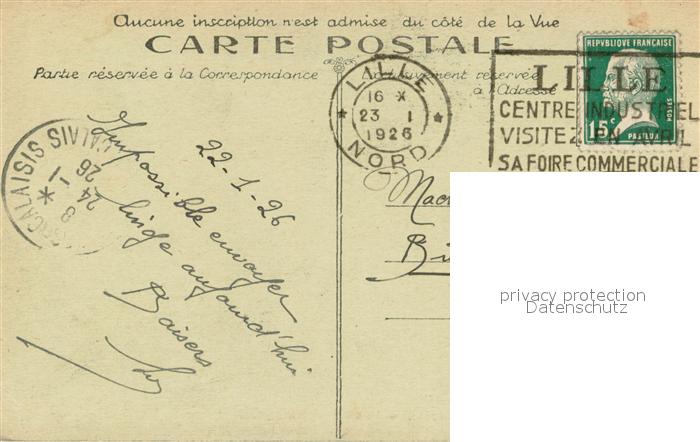 Aucune inscription n'est admise du côté de la Vue
CARTE POSTALE
Partie réservée à la Correspondance
réservée
à l'Adresse
LILLE
16 X
23 1
1926
NORD
REPVBLIQUE FRANÇAISE
15c
POSTES
PASTEUR
LILLE
CENTRE INDUSTRIEL
VISITEZ EN AVRIL
SA FOIRE COMMERCIALE
CALAIS
8 *
24 -1
26
22-1-26
Impossible envoyer
linge aujourd'hui
Baisers
privacy protection
Datenschutz